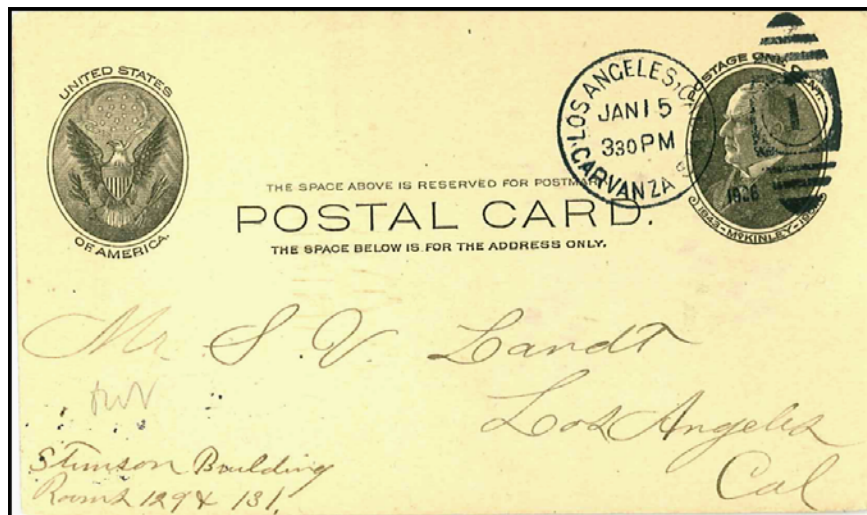 UNITED STATES
OF AMERICA.
LOS ANGELES, CAL.
JAN 15
330 PM
CARVANZA
1
POSTAGE ONE CENT.
1843-McKINLEY-1901
THE SPACE ABOVE IS RESERVED FOR POSTMARK
POSTAL CARD.
THE SPACE BELOW IS FOR THE ADDRESS ONLY.
Mr S. V. Landt
Los Angeles
Cal
Stimson Building
Rooms 129 & 131.